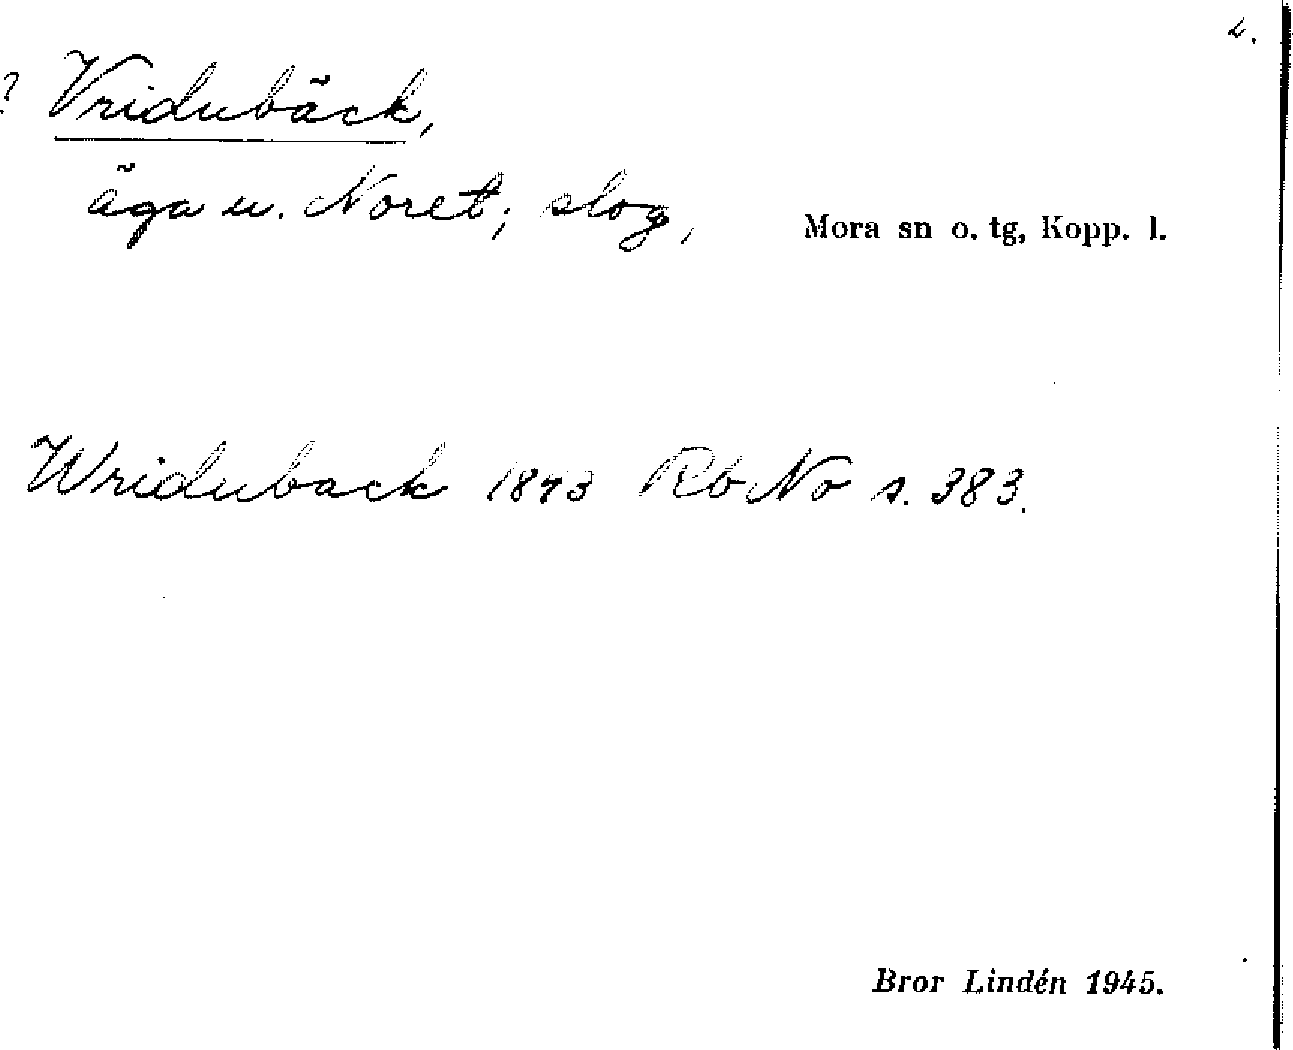 2.
? Vridubäck,
äga u. Noret; slog, Mora sn o. tg, Kopp. l.
Wriduback 1873 Rb No s. 383.
Bror Lindén 1945.